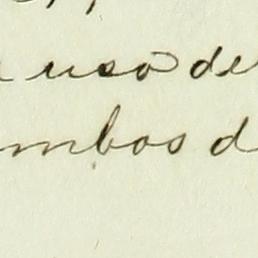 uso de
ambos d